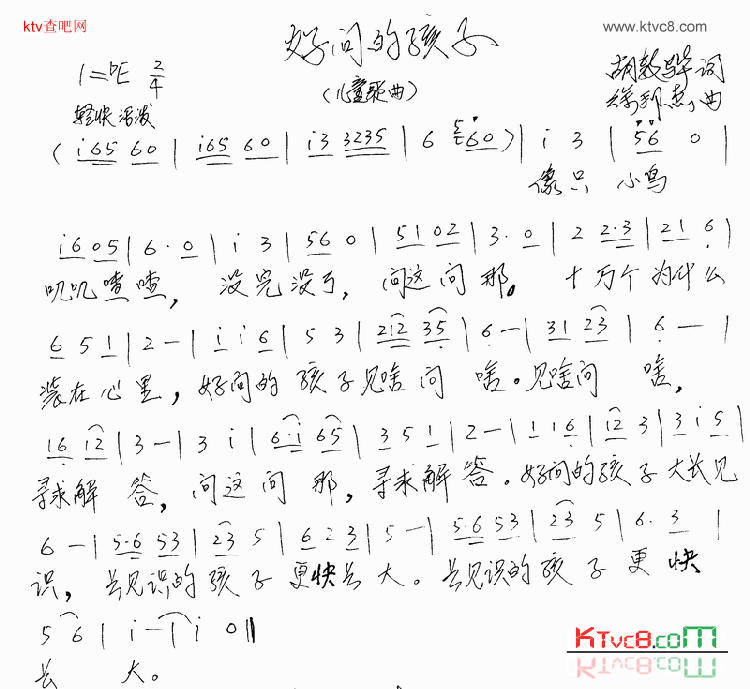 ktv查吧网
www.ktvc8.com
好问的孩子
1=bE 2/4
(儿童歌曲)
胡敦骅 词
曲
轻快 活泼
( i65 60 | i65 60 | i3 3235 | 6 5 60 ) | i 3 | 56 0 |
像只 小鸟
i605 | 6·0 | i 3 | 56 0 | 5102 | 3·0 | 2 2·3 | 21 6 |
叽叽喳喳, 没完没了, 问这问那。 十万个为什么
6 5 1 | 2 - | i i6 | 5 3 | 212 35 | 6 - | 31 23 | 6 - |
装在心里, 好问的 孩子见啥问 啥。见啥问 啥,
16 12 | 3 - | 3 i | 6·i 65 | 3 5 1 | 2 - | 1 16 | 12 3 | 3 i 5 |
寻求解 答, 问这问 那, 寻求解 答。好问的孩子 大长见
6 - | 5·6 53 | 23 5 | 6 2 3 | 5 - | 5·6 53 | 23 5 | 6· 3 |
识, 长见识的孩子更快长大。长见识的孩子更快
5 6 | i - | i 0 ||
长 大。
KTvc8.com